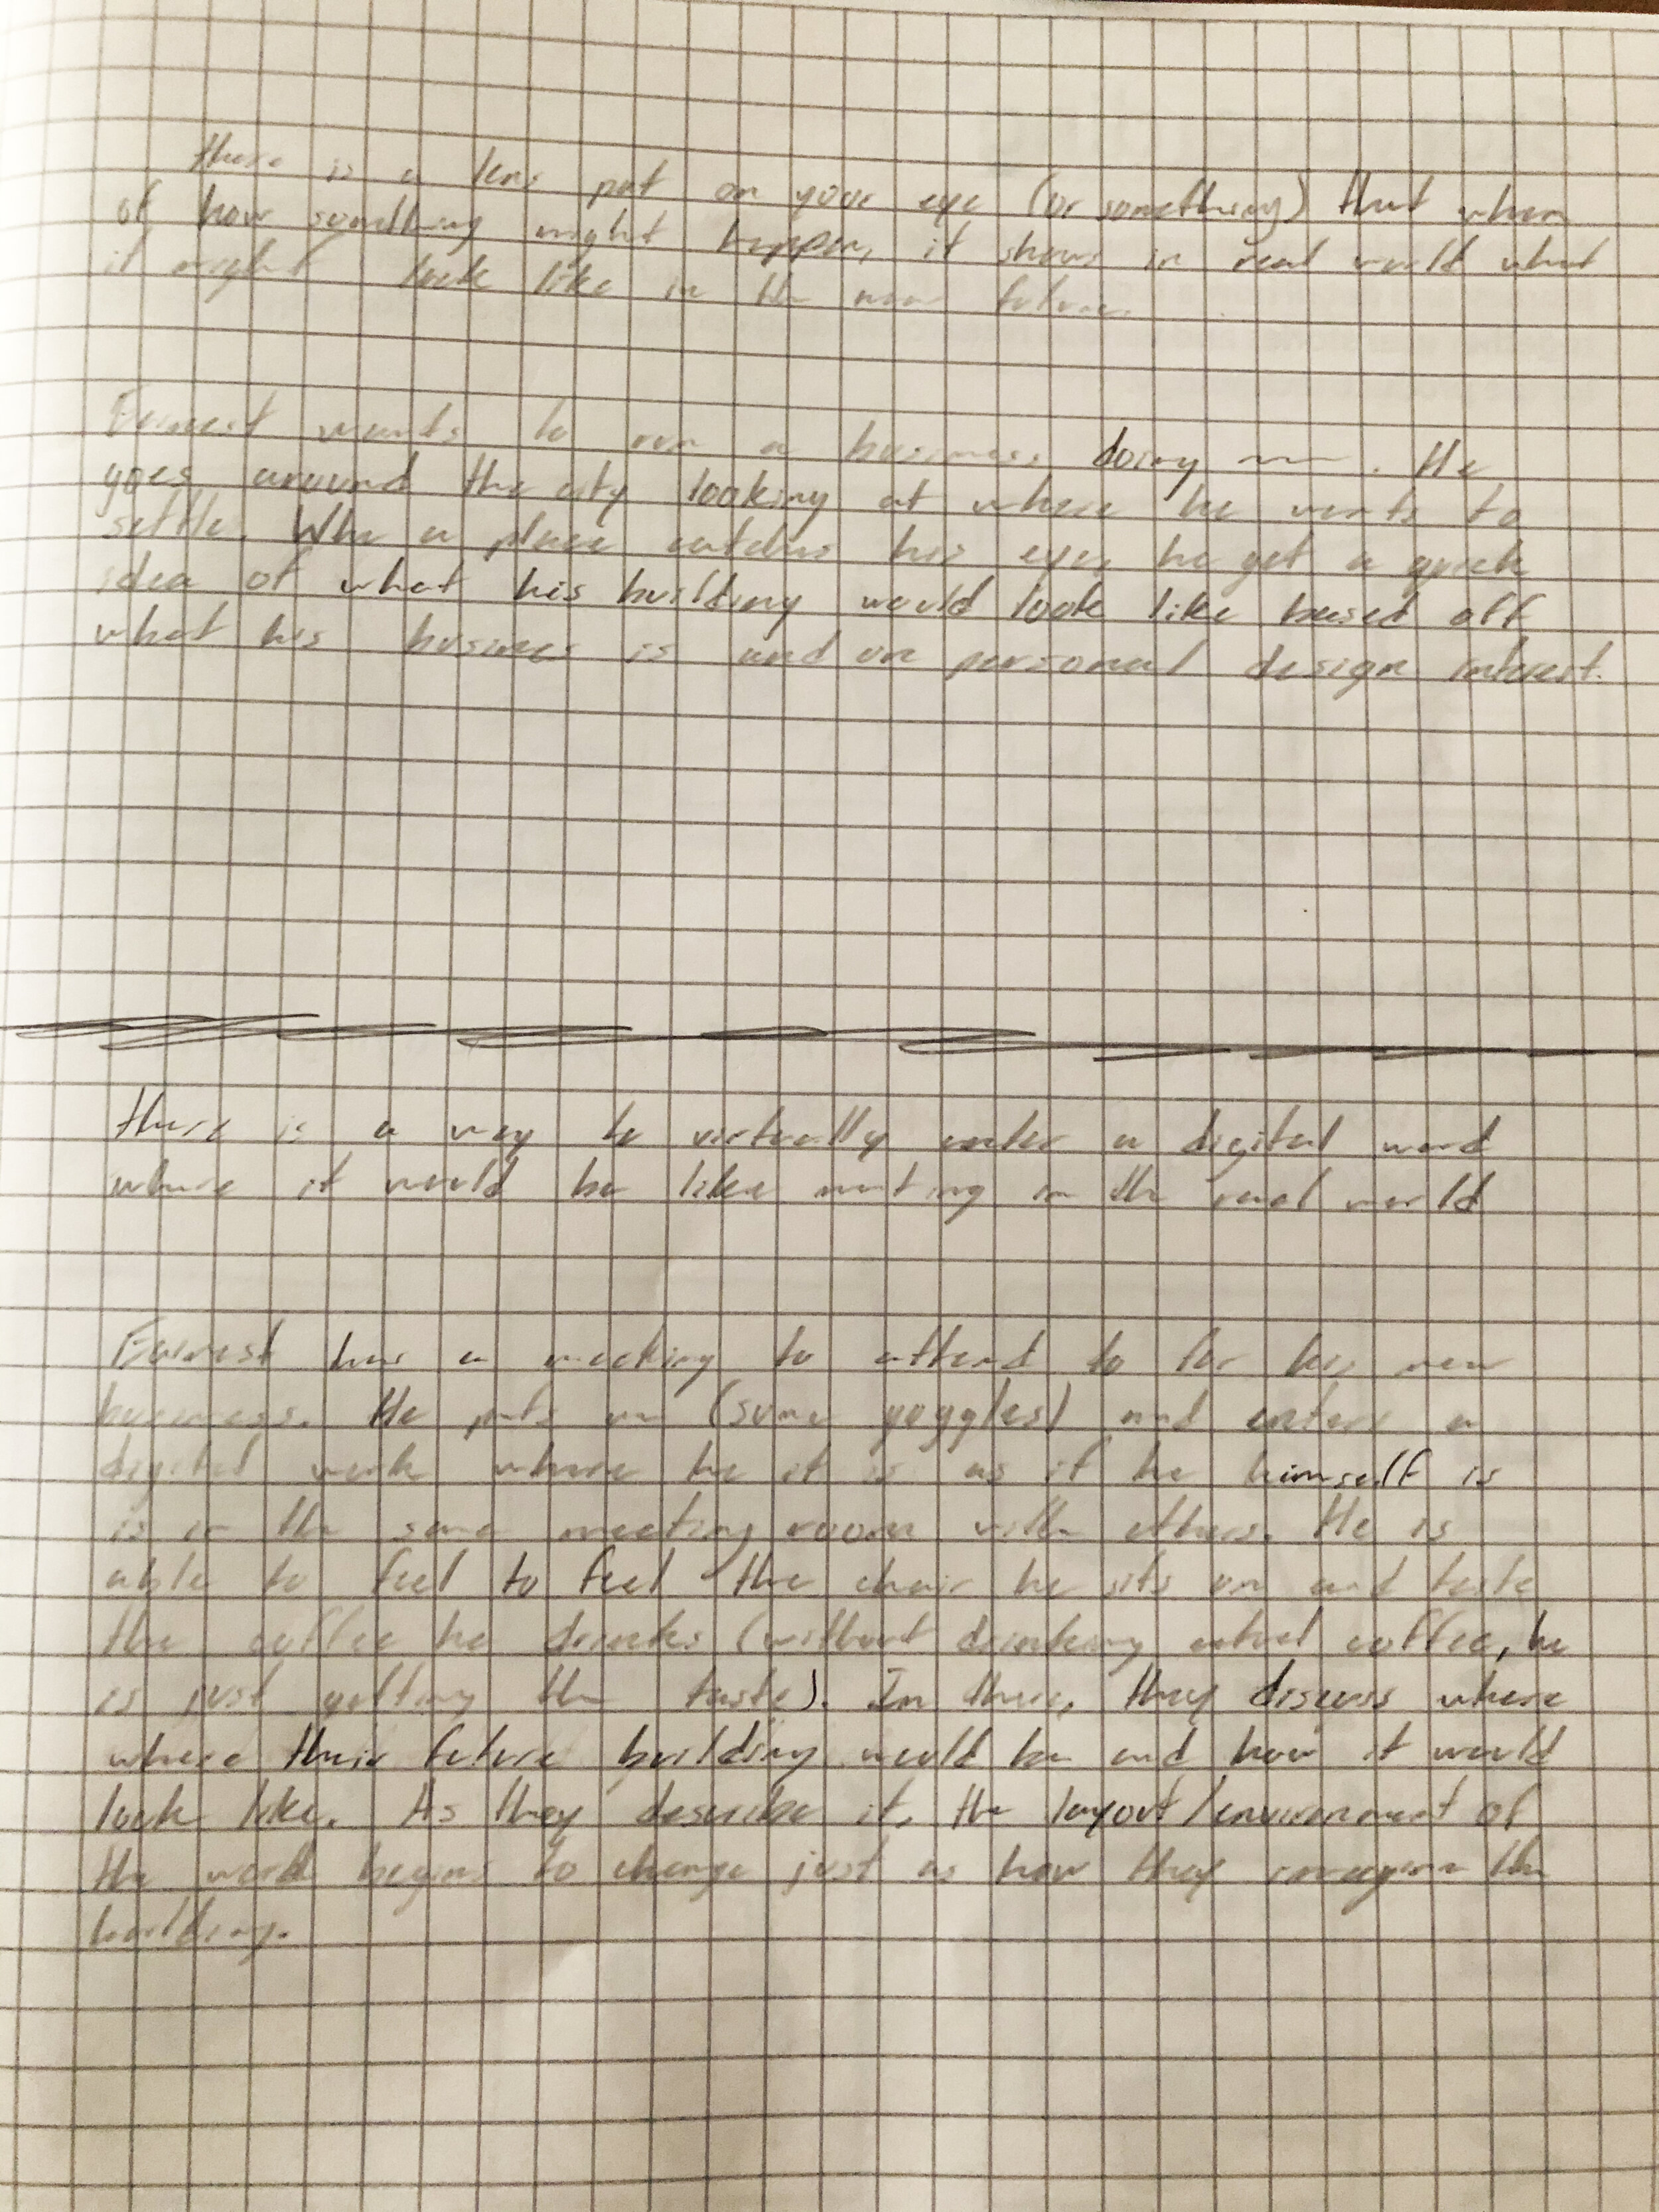 there is a lens put on your eye (or something) that when
of how something might happen, it shows in real world what
it might look like in the near future.
wants to run a business doing . He
goes around the city looking at where he wants to
settle. Whe a place catches his eye, he get a quick
idea of what his building would look like based off
what his business is and on personal design interest.
there is a way to virtually enter a digital word
where it would be like meeting in the real world
has a meeting to attend to for his new
business. He puts on (some goggles) and enters a
digital where he it is as if he himself is
is in the same meeting room with others. He is
able to feel to feel the chair he sits on and taste
the coffee he drinks (without drinking actual coffee, he
is just getting the taste). In there, they discuss where
where their future building would be and how it would
look like. As they describe it, the layout/environment of
the begins to change just as how they the
building.